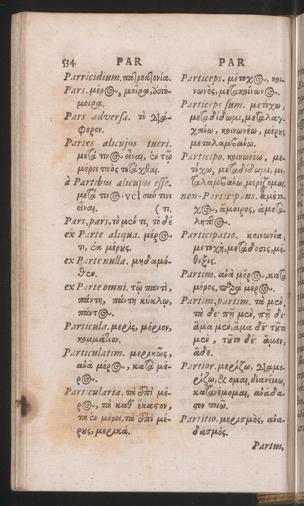 534 PAR PAR
Parricidium. πατροκτονία.
Pars. μέρος, μοῖρα,
μοιρα.
Pars adversa. τὸ διά-
φορον.
Partes alicujus tueri.
μετά τινος εἶναι, ἐν τῷ
μέρει τινὸς τετάχθαι.
à Partibus alicujus esse.
μετά τινος, vel ὑπό τινι
εἶναι. (τι.
Pars, pars. τὸ μέν τι, τὸ δέ
ex Parte aliqua. μέρος
τι, ἐκ μέρους.
ex Parte nulla. μηδαμό-
θεν.
ex Parte omni. τῷ παντὶ,
πάντη, πάντῃ κύκλῳ,
πάντως.
Particula. μερὶς, μόριον,
κομμάτιον.
Particulatim. μερικῶς,
ἀνὰ μέρος, κατὰ μέ-
ρος.
Particularia. τὰ ἐπὶ μέ-
ρος, τὰ καθ' ἕκαστον,
τὰ ἐν μέρει, τὰ ἐπὶ μέ-
ρους, μερικά.
Particeps. μέτοχος, κοι-
νωνὸς, μετακοίνωνος.
Particeps sum. μετέχω,
μεταδίδωμι, μεταλαγ-
χάνω, κοινωνέω, μέρους
μεταλαμβάνω.
Participo. κοινωνέω, με-
τέχω, μεταδίδωμι, με-
ταλαμβάνω, μερίζομαι.
non-Particeps. ἀμέτο-
χος, ἄμοιρος, ἀμετά-
ληπτος.
Participatio. κοινωνία,
μετοχὴ, μετάδοσις, μέ-
θεξις.
Partim. ἀνὰ μέρος, κατὰ
μέρος, παρὰ μέρος.
Partim, partim. τὰ μὲν,
τὰ δέ· πῆ μὲν, πῆ δέ·
ἅμα μὲν, ἅμα δέ· τοῦτο
μὲν, τοῦτο δέ·
Partior. μερίζω, διαμε-
ρίζω, & ομαι, διανέμω,
κατανέμομαι,
Partitio. μερισμὸς, ἀνα-
δασμός.
Partus,